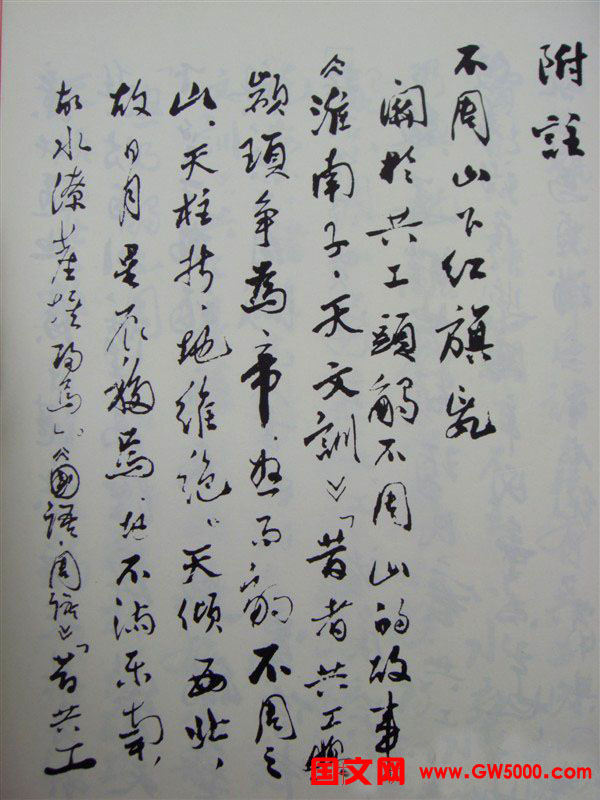 附註
不周山下红旗乱
関於共工頭觸不周山的故事
《淮南子·天文訓》「昔者共工與
颛顼争為帝，怒而觸不周之
山，天柱折，地维绝。天倾西北，
故日月星辰移焉；地不满东南，
故水潦塵埃归焉。」《國語·周語》「昔共工
国文网 www.GW5000.com